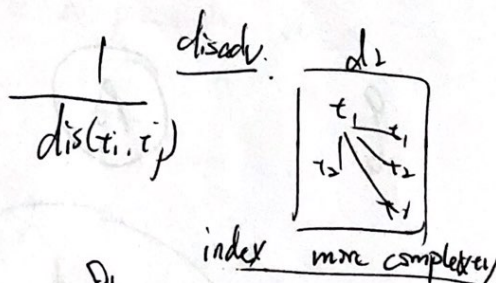 1
dis(ti, tj)
disadv:
d2
t1
t1
t2
t2
index more complexity
D1